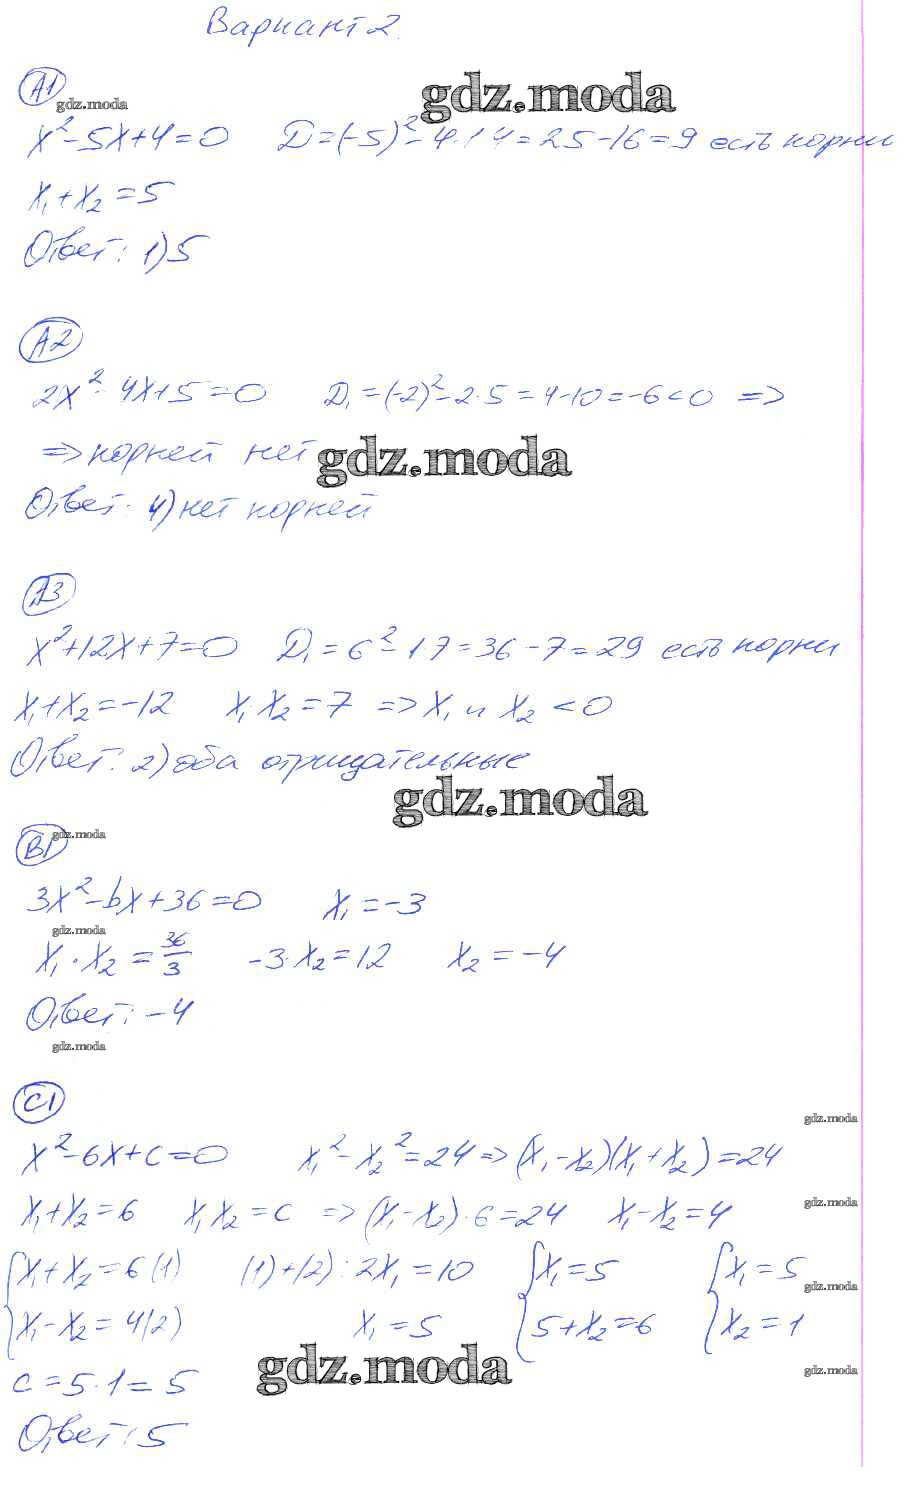 Вариант 2.
А1
gdz.moda
gdz.moda
x²-5x+4=0 D=(-5)²-4·1·4=25-16=9 есть корни
x₁+x₂=5
Ответ: 1) 5
А2
2x²-4x+5=0 D₁=(-2)²-2·5=4-10=-6<0 =>
=> корней нет
gdz.moda
Ответ: 4) нет корней
А3
x²+12x+7=0 D₁=6²-1·7=36-7=29 есть корни
x₁+x₂=-12 x₁x₂=7 => x₁ и x₂ <0
Ответ: 2) оба отрицательные
gdz.moda
gdz.moda
В1
3x²-bx+36=0 x₁=-3
gdz.moda
x₁·x₂=36/3 -3·x₂=12 x₂=-4
Ответ: -4
gdz.moda
С1
gdz.moda
x²-6x+c=0 x₁²-x₂²=24=>(x₁-x₂)(x₁+x₂)=24
gdz.moda
x₁+x₂=6 x₁x₂=c => (x₁-x₂)·6=24 x₁-x₂=4
{x₁+x₂=6 (1) (1)+(2): 2x₁=10 {x₁=5 {x₁=5
gdz.moda
x₁-x₂=4 (2) x₁=5 5+x₂=6 x₂=1
gdz.moda
gdz.moda
c=5·1=5
Ответ: 5